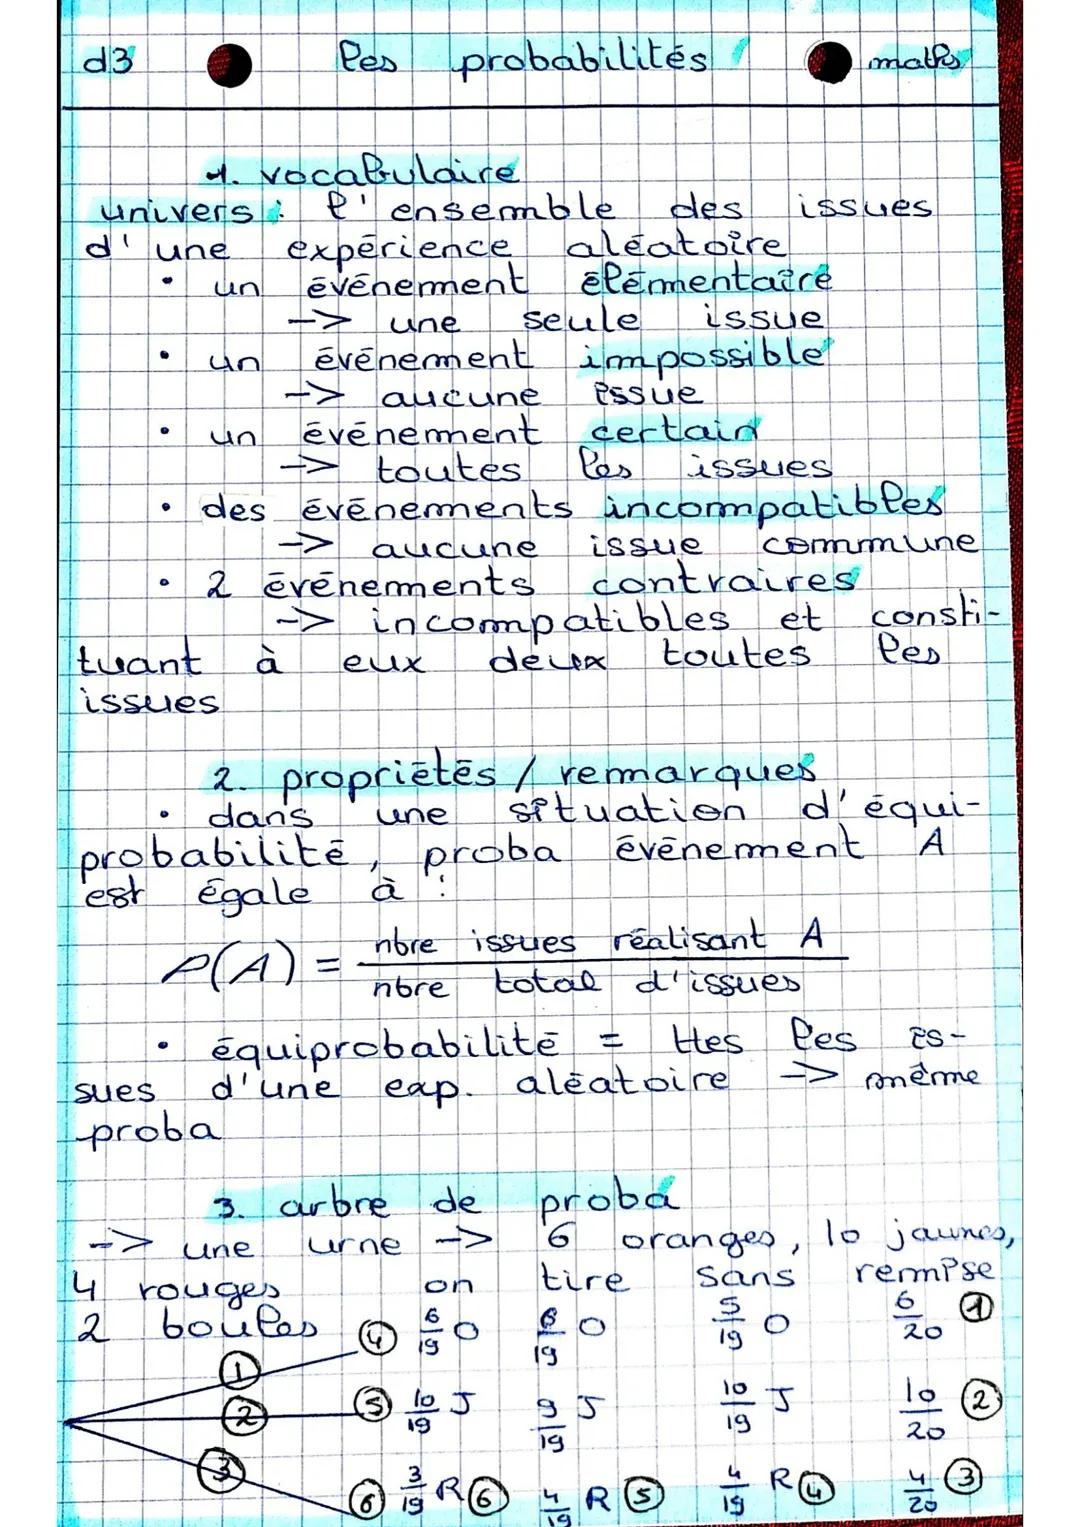 d3 les probabilités maths
1. vocabulaire
univers : l'ensemble des issues
d'une expérience aléatoire
• un événement élémentaire
--> une seule issue
• un événement impossible
--> aucune issue
• un événement certain
--> toutes les issues
• des événements incompatibles
--> aucune issue commune
• 2 événements contraires
--> incompatibles et consti-
tuant à eux deux toutes les
issues
2. propriétés / remarques
• dans une situation d'équi-
probabilité, proba événement A
est égale à :
P(A) = nbre issues réalisant A / nbre total d'issues
• équiprobabilité = ttes les is-
sues d'une exp. aléatoire --> même
proba
3. arbre de proba
--> une urne --> 6 oranges, 10 jaunes,
4 rouges on tire sans remise
2 boules ④ 6/19 O 6/19 O 5/19 O 6/20 ①
①
② ⑤ 10/19 J 9/19 J 10/19 J 10/20 ②
③ ⑥ 3/19 R ⑥ 4/19 R ⑤ 4/19 R ④ 4/20 ③